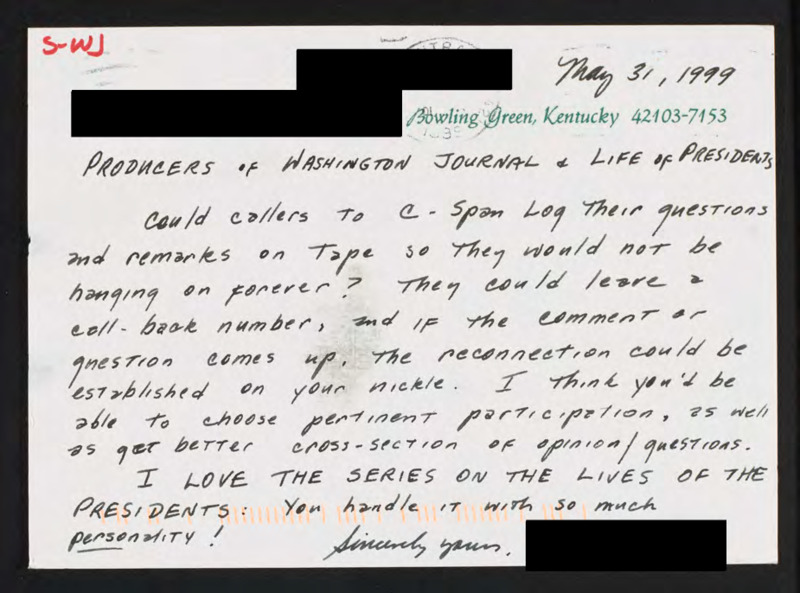 S-WJ
May 31, 1999
Bowling Green, Kentucky 42103-7153
PRODUCERS OF WASHINGTON JOURNAL & LIFE OF PRESIDENTS
Could callers to C-Span Log Their questions
and remarks on Tape so They would not be
hanging on forever? They could leave a
call-back number, and if the comment or
question comes up, the reconnection could be
established on your nickle. I Think you'd be
able to choose pertinent participation, as well
as get better cross-section of opinion/questions.
I LOVE THE SERIES ON THE LIVES OF THE
PRESIDENTS: You handle it with so much
personality!
Sincerely yours,